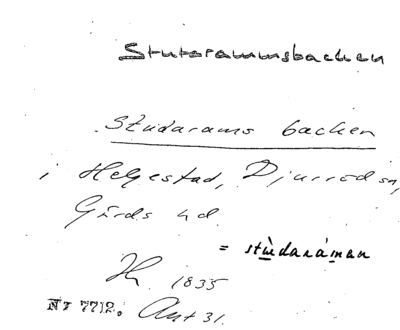 Stutorammsbacken
Studarams backen
i Helgestad, Djurröd sn,
Gärds hd.
= stùdaráman
1835
Nr 7712. Ant 31.